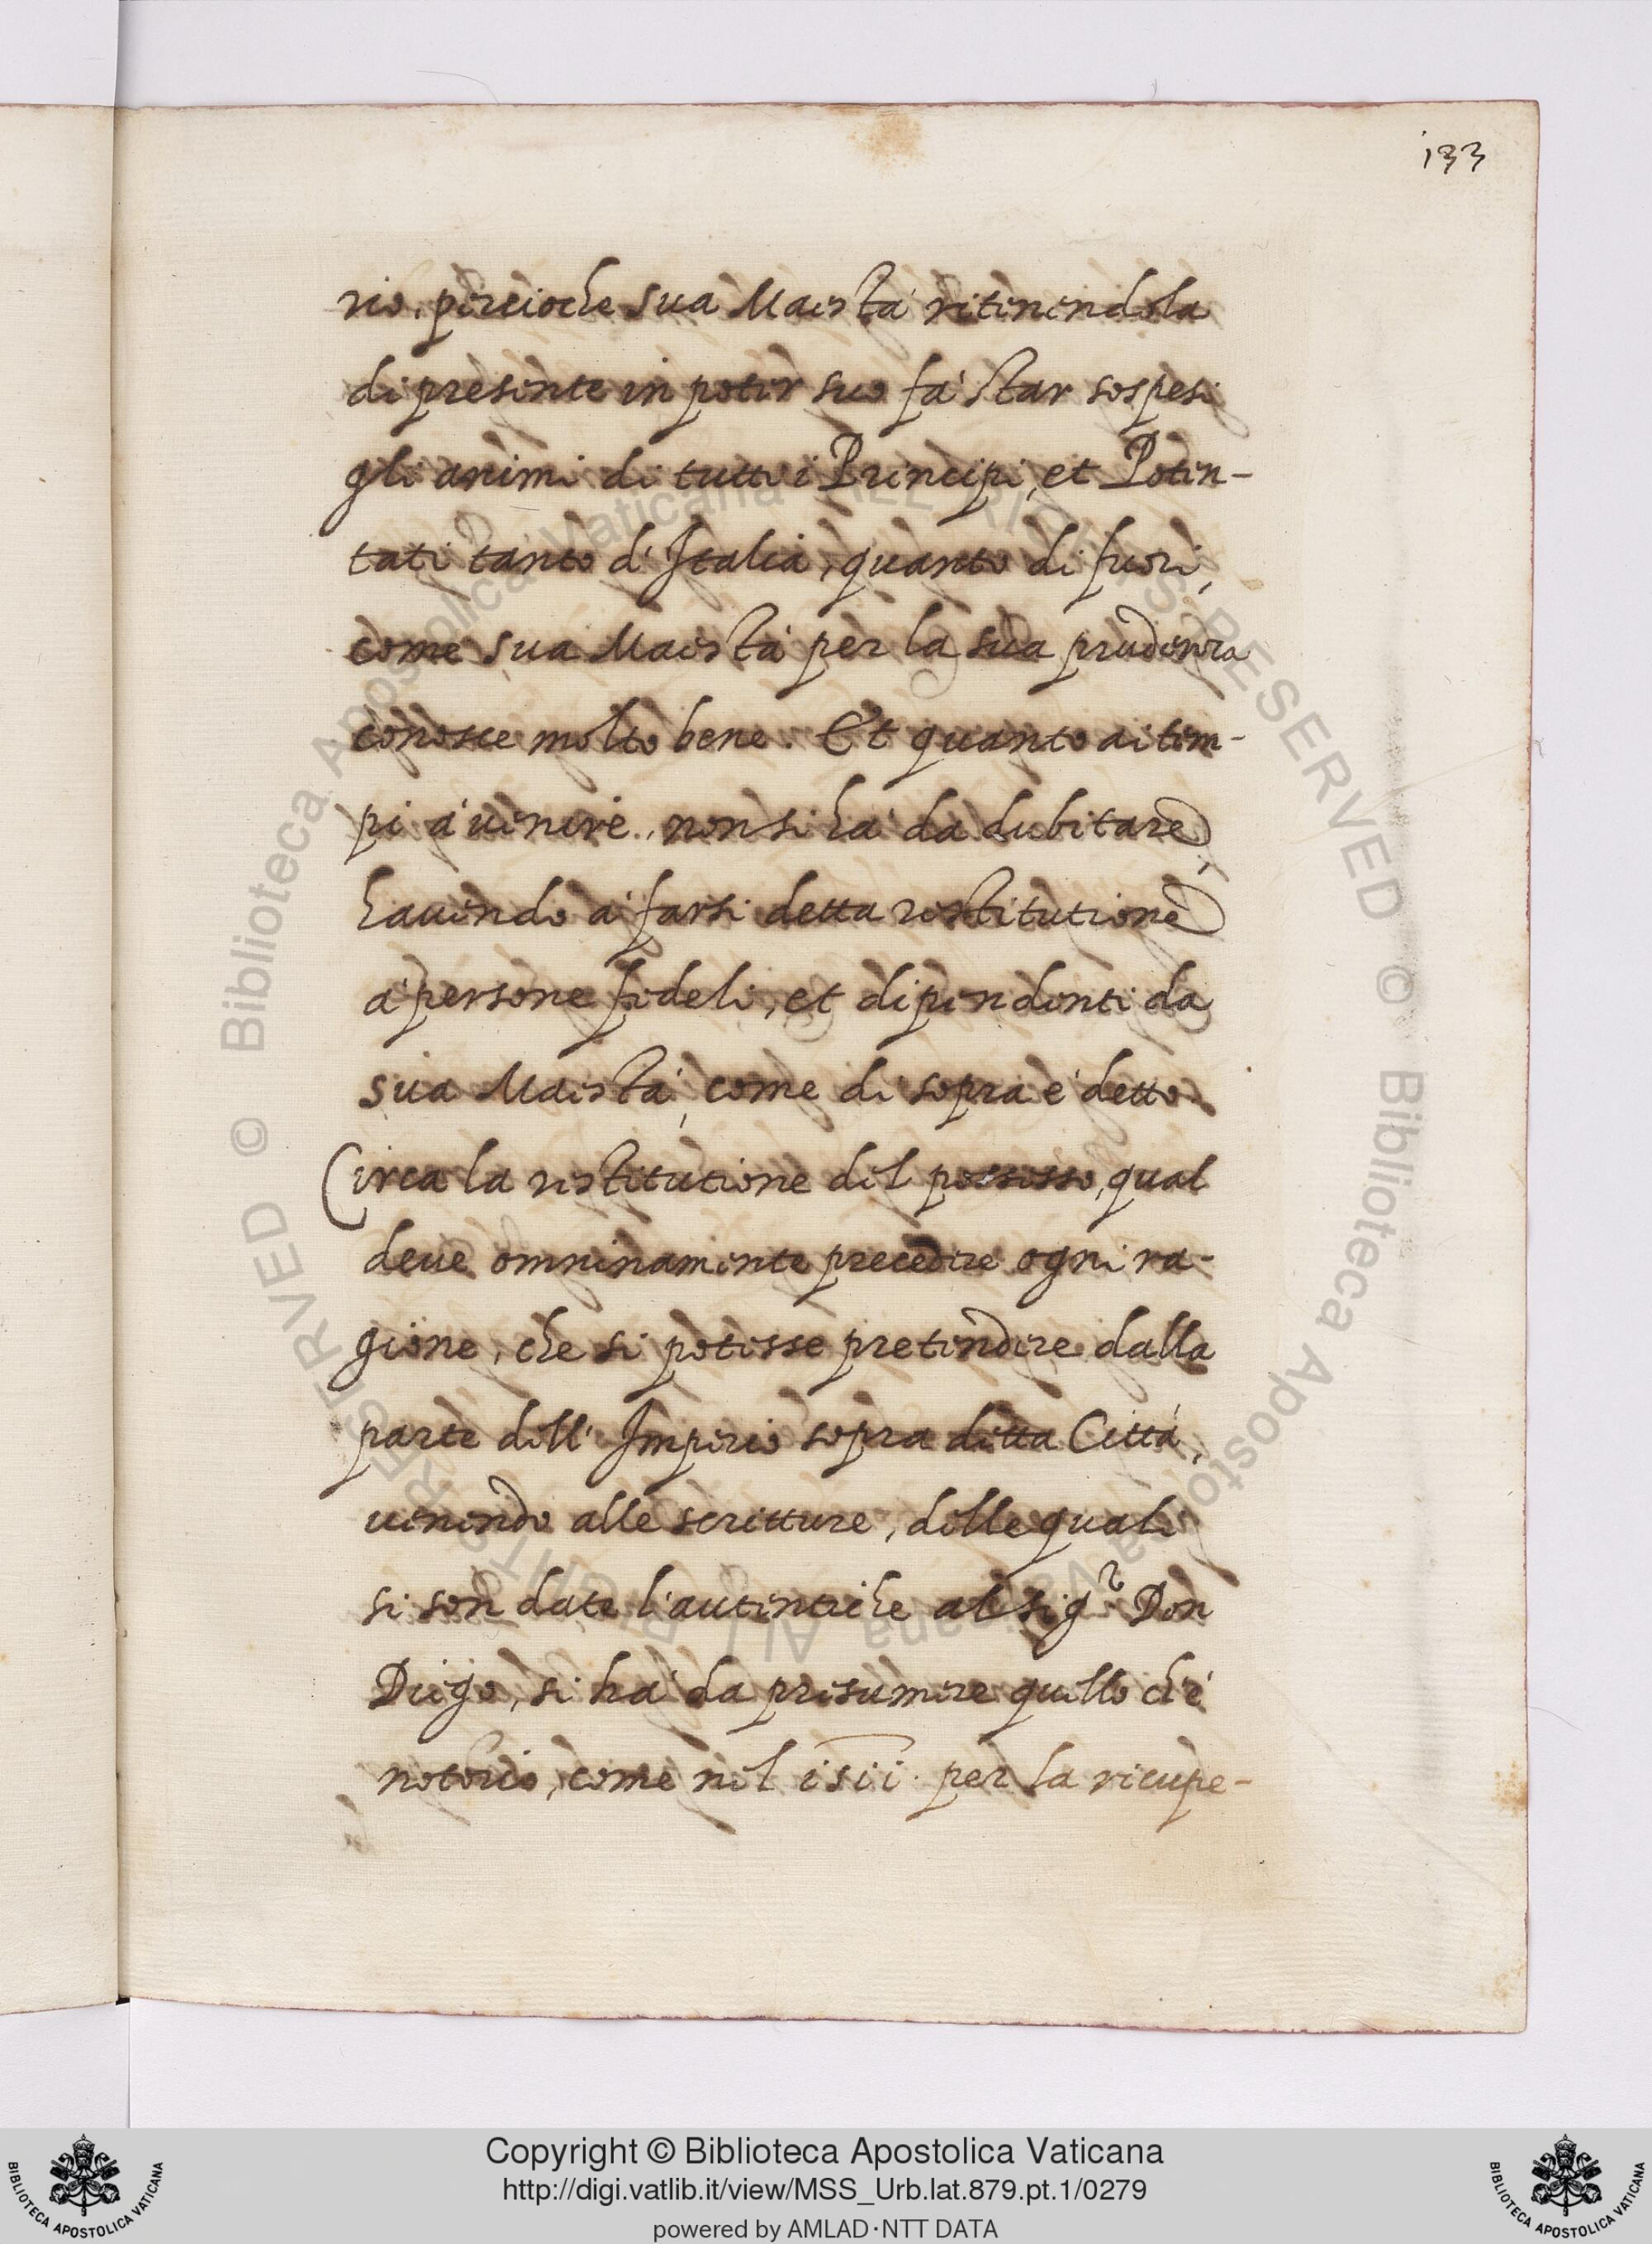 133
rio, percioche sua Maestà ritenendola
di presente in poter suo fà star sospesi
gli animi di tutti i Principi, et Poten-
tati tanto d'Italia, quanto di fuori,
come sua Maestà per la sua prudenza
conosce molto bene. Et quanto ai tem-
pi à venire, non si ha da dubitare,
havendo à farsi detta restitutione
à persone fideli, et dipendenti da
sua Maestà, come di sopra è detto.
Circa la restitutione del possesso, qual
deve omninamente precedere ogni ra-
gione, che si potesse pretendere dalla
parte dell'Imperio sopra detta Città,
venendo alle scritture, delle quali
si son date l'autentiche al sigr Don
Diego, si hà da presumere quello ch'è
notorio, come nel 1511. per la ricupe-
Copyright © Biblioteca Apostolica Vaticana
http://digi.vatlib.it/view/MSS_Urb.lat.879.pt.1/0279
powered by AMLAD·NTT DATA
BIBLIOTECA APOSTOLICA VATICANA
BIBLIOTECA APOSTOLICA VATICANA
© Biblioteca Apostolica Vaticana ALL RIGHTS RESERVED
© Biblioteca Apostolica Vaticana ALL RIGHTS RESERVED